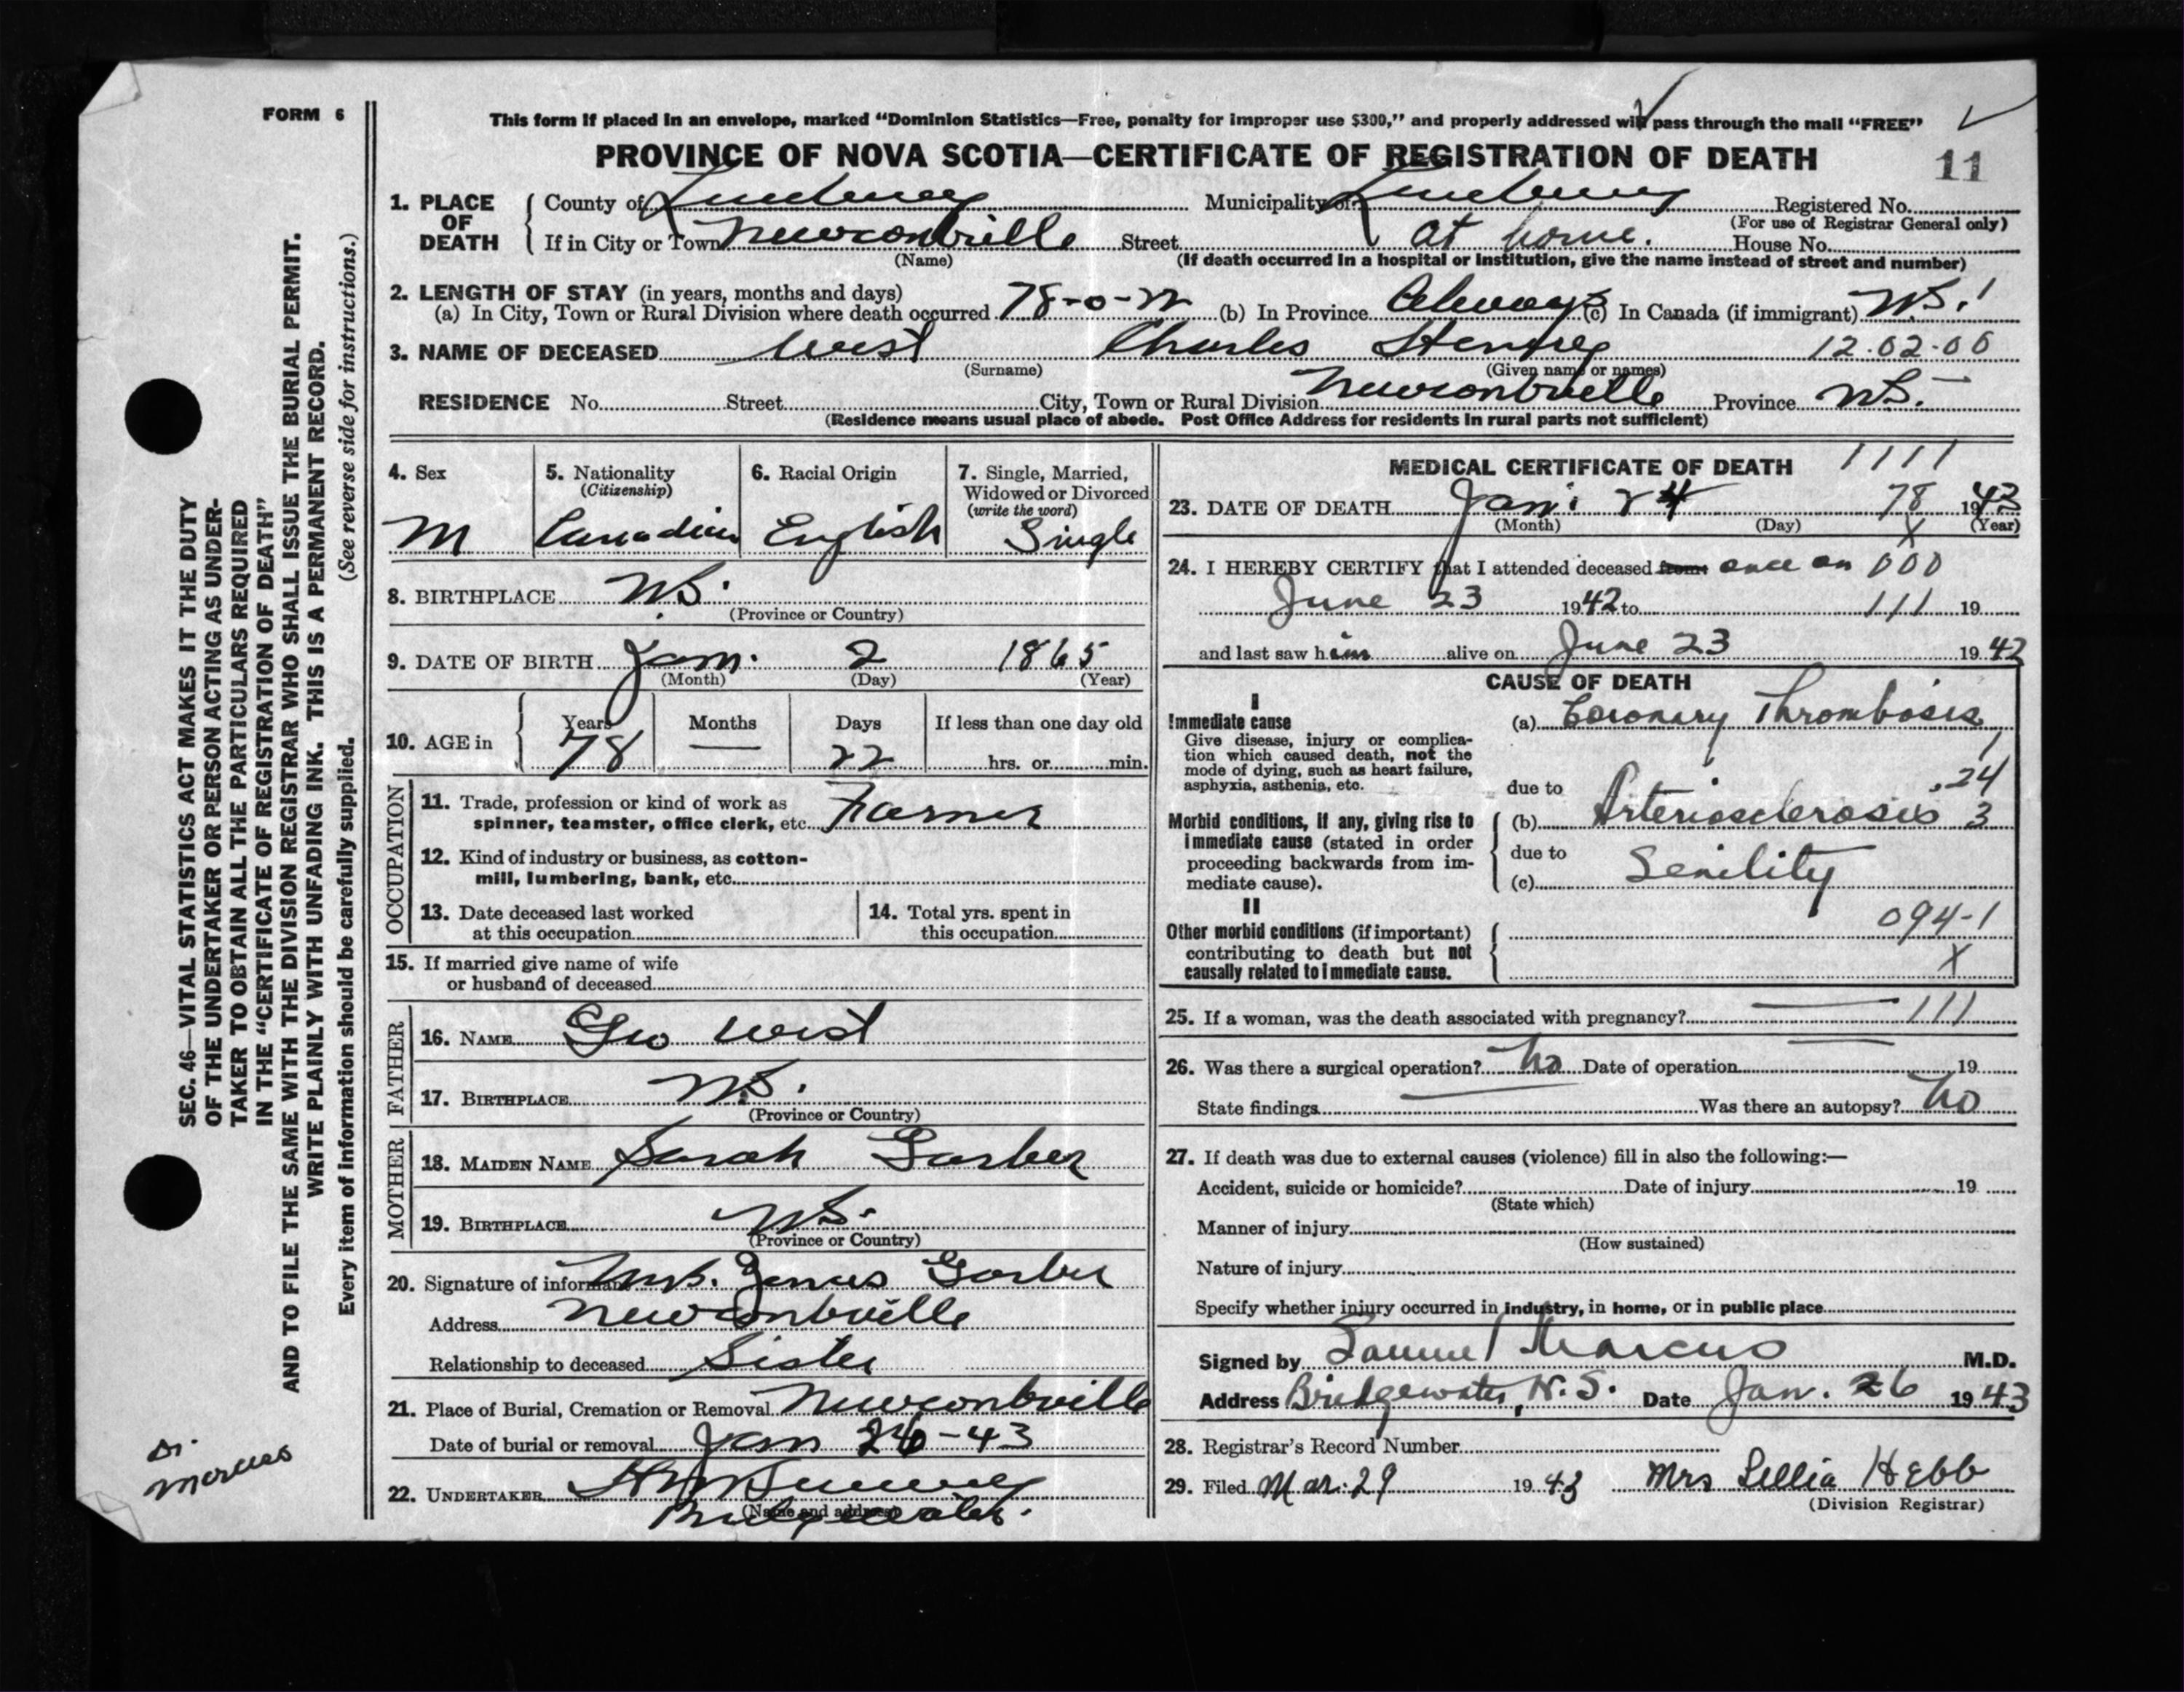 FORM 6
This form if placed in an envelope, marked "Dominion Statistics—Free, penalty for improper use $300," and properly addressed will pass through the mail "FREE"
PROVINCE OF NOVA SCOTIA—CERTIFICATE OF REGISTRATION OF DEATH
11
1. PLACE OF DEATH
County of Lunenburg Municipality of Lunenburg Registered No.
(For use of Registrar General only)
If in City or Town Newcombville Street At home. House No.
(Name) (If death occurred in a hospital or institution, give the name instead of street and number)
2. LENGTH OF STAY (in years, months and days)
(a) In City, Town or Rural Division where death occurred 78-0-22 (b) In Province Always (c) In Canada (if immigrant) N.S. 1
3. NAME OF DECEASED West Charles Henry 12.02.06
(Surname) (Given name or names)
RESIDENCE No. Street City, Town or Rural Division Newcombville Province N.S.
(Residence means usual place of abode. Post Office Address for residents in rural parts not sufficient)
4. Sex
M
5. Nationality
(Citizenship)
Canadian
6. Racial Origin
English
7. Single, Married,
Widowed or Divorced
(write the word)
Single
8. BIRTHPLACE N.S.
(Province or Country)
9. DATE OF BIRTH Jan. 2 1865
(Month) (Day) (Year)
10. AGE in
Years Months Days If less than one day old
78 — 22 hrs. or min.
OCCUPATION
11. Trade, profession or kind of work as
spinner, teamster, office clerk, etc. Farmer
12. Kind of industry or business, as cotton-
mill, lumbering, bank, etc.
13. Date deceased last worked
at this occupation
14. Total yrs. spent in
this occupation
15. If married give name of wife
or husband of deceased
FATHER
16. NAME Geo West
17. BIRTHPLACE N.S.
(Province or Country)
MOTHER
18. MAIDEN NAME Sarah Garber
19. BIRTHPLACE N.S.
(Province or Country)
20. Signature of informant Mrs. Garber
Address Newcombville
Relationship to deceased Sister
21. Place of Burial, Cremation or Removal Newcombville
Date of burial or removal Jan 26-43
22. UNDERTAKER
(Name and address)
Bridgewater.
MEDICAL CERTIFICATE OF DEATH 1111
23. DATE OF DEATH Jan. 24 78 1943
(Month) (Day) X (Year)
24. I HEREBY CERTIFY that I attended deceased from once on 000
June 23 1942 to 111 19
and last saw him alive on June 23 1942
CAUSE OF DEATH
I
Immediate cause
Give disease, injury or complica-
tion which caused death, not the
mode of dying, such as heart failure,
asphyxia, asthenia, etc.
(a) Coronary Thrombosis
1
due to .24
Morbid conditions, if any, giving rise to
immediate cause (stated in order
proceeding backwards from im-
mediate cause).
(b) Arteriosclerosis 3
due to
(c) Senility
II
Other morbid conditions (if important)
contributing to death but not
causally related to immediate cause.
094-1
X
25. If a woman, was the death associated with pregnancy? — 111
26. Was there a surgical operation? No Date of operation — 19
State findings — Was there an autopsy? No
27. If death was due to external causes (violence) fill in also the following:—
Accident, suicide or homicide? Date of injury 19
(State which)
Manner of injury
(How sustained)
Nature of injury
Specify whether injury occurred in industry, in home, or in public place
Signed by Samuel Marcus M.D.
Address Bridgewater, N.S. Date Jan. 26 1943
28. Registrar's Record Number
29. Filed Mar. 29 1943 Mrs Lellia Hebb
(Division Registrar)
SEC. 46—VITAL STATISTICS ACT MAKES IT THE DUTY
OF THE UNDERTAKER OR PERSON ACTING AS UNDER-
TAKER TO OBTAIN ALL THE PARTICULARS REQUIRED
IN THE "CERTIFICATE OF REGISTRATION OF DEATH"
AND TO FILE THE SAME WITH THE DIVISION REGISTRAR WHO SHALL ISSUE THE BURIAL PERMIT.
WRITE PLAINLY WITH UNFADING INK. THIS IS A PERMANENT RECORD.
Every item of information should be carefully supplied. (See reverse side for instructions.)
Marcus